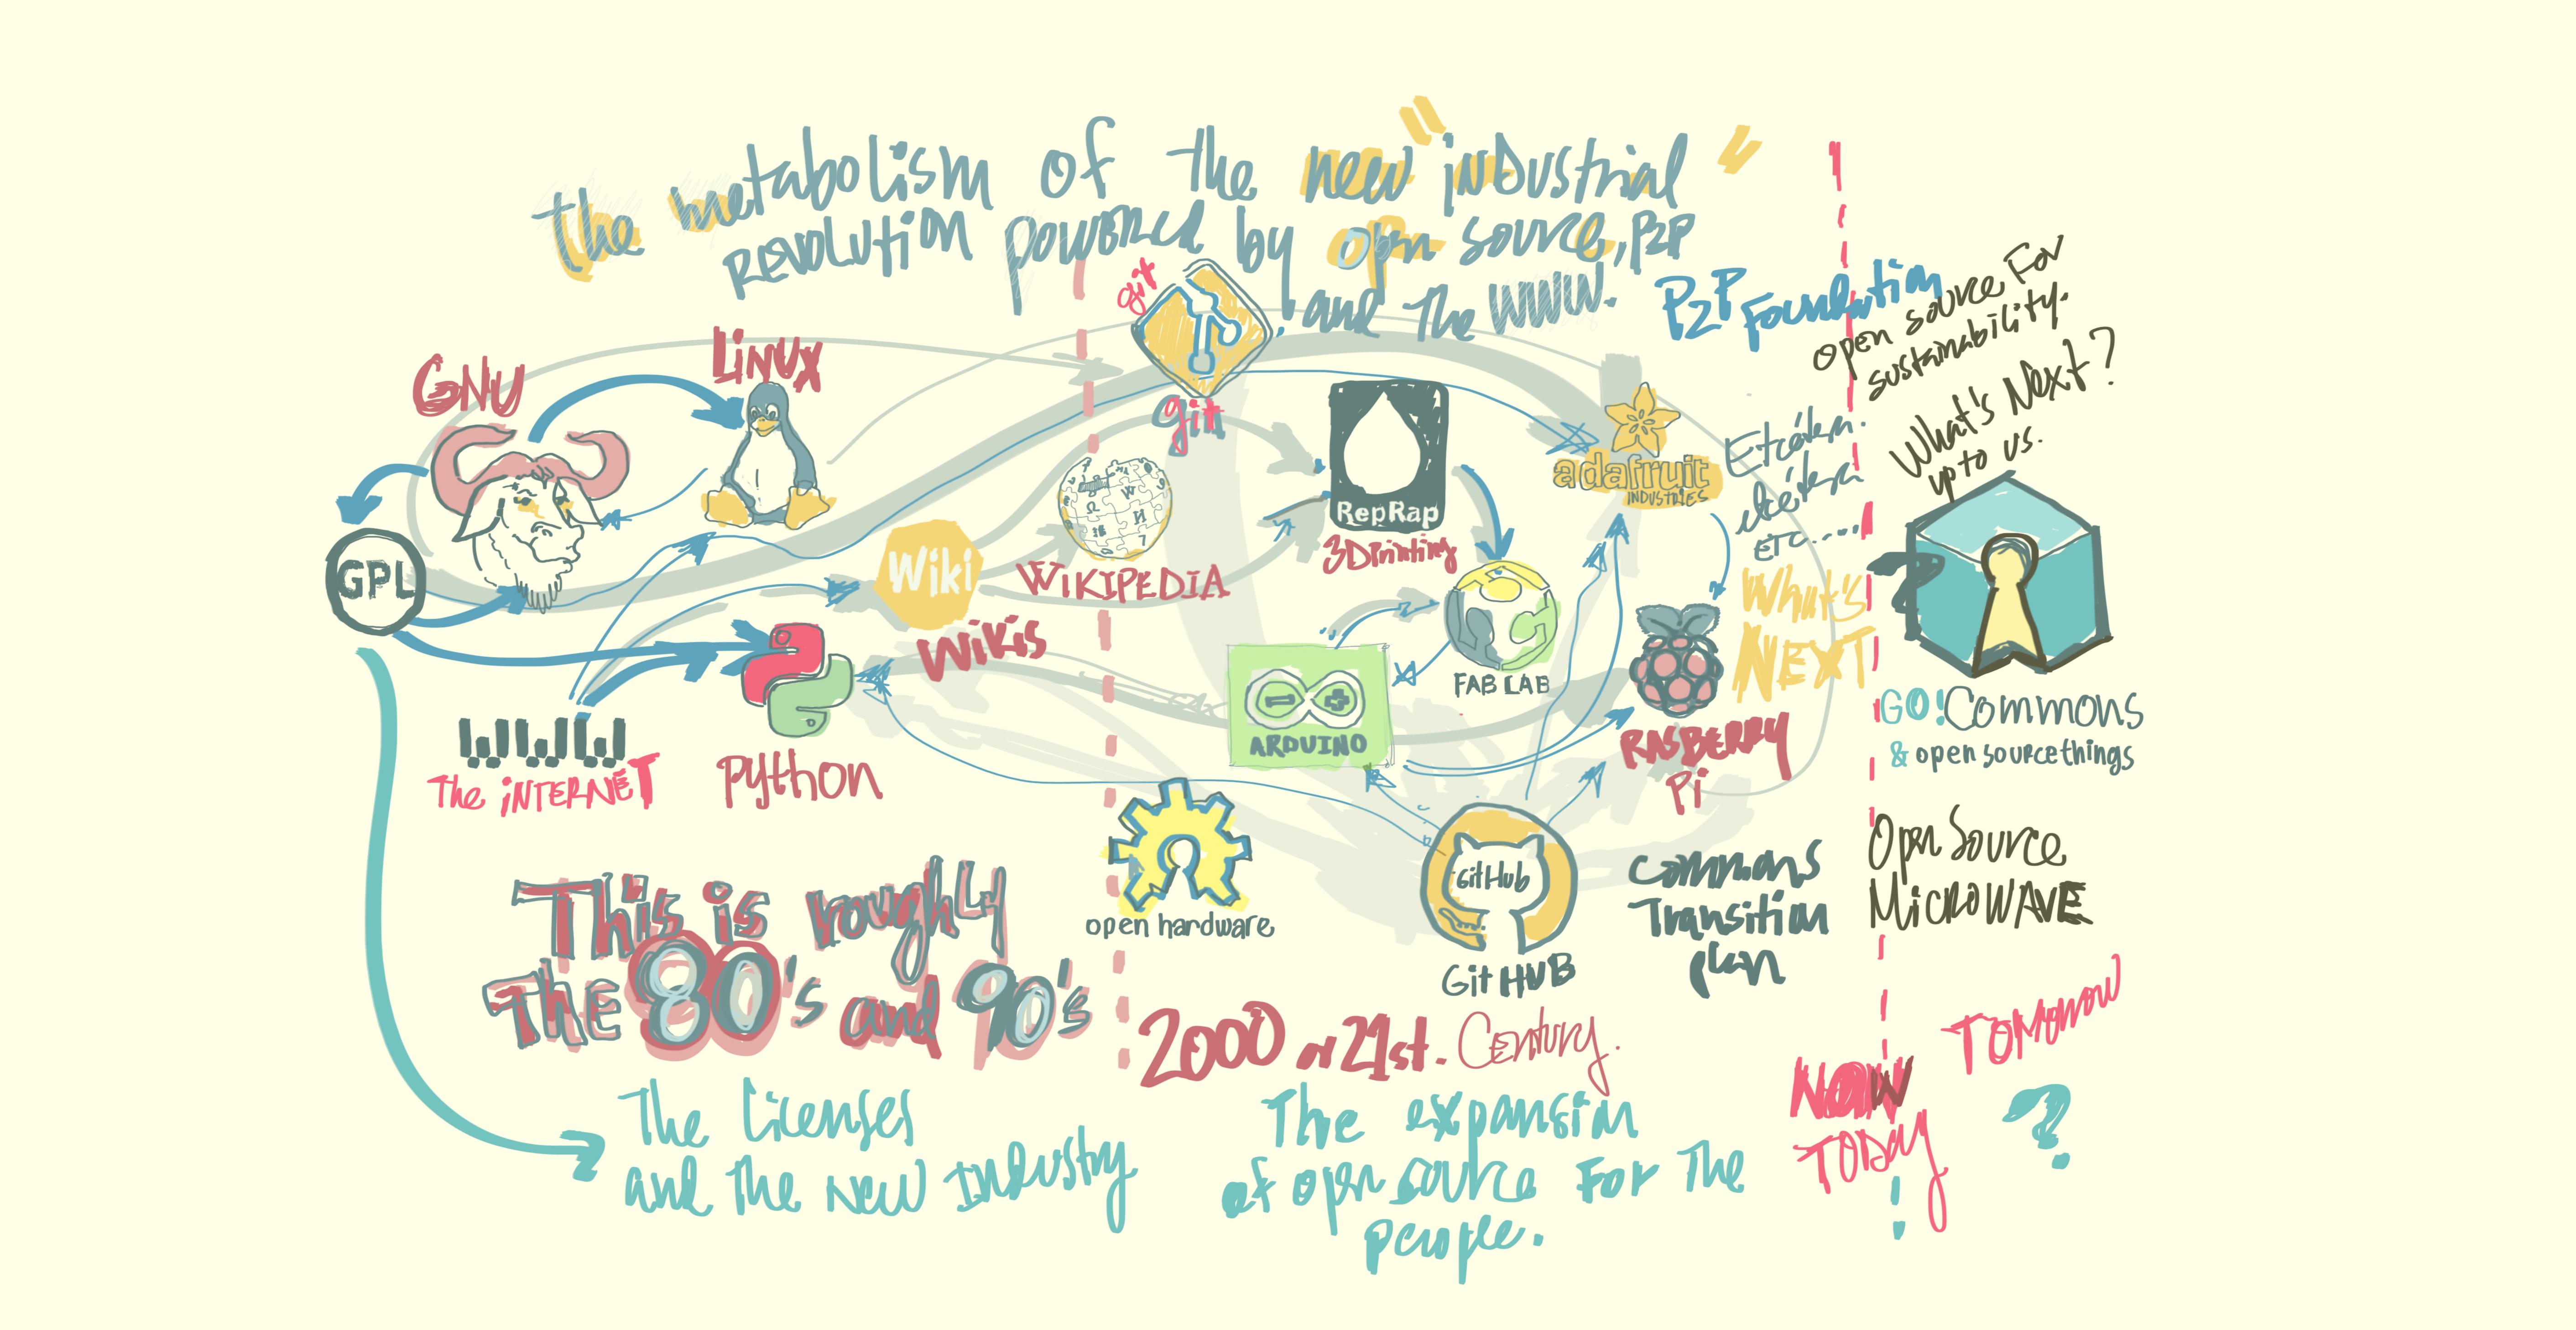 the metabolism of the new "inDustrial"
REVOLUTION powered by open source, P2P
and The WWW.
git
git
P2P Foundation
open source For
sustainability.
What's Next?
up to us.
GNU
LiNUX
GPL
Wiki
WiKiS
WIKIPEDIA
RepRap
3D Printing
adafruit
INDUSTRIES
Etcétera.
etcétera
etc.....
What's
NEXT
FAB LAB
ARDUINO
RASBERRY
Pi
WWW
The iNTERNET
python
open hardware
GitHub
GitHUB
GO! Commons
& open source things
Open Source
MicroWAVE
Commons
Transition
plan
This is roughly
THE 80's and 90's
2000 or 21st. Century.
The licenses
and the new Industry
The expansion
of open source For The
people.
NOW
TODAY
TOMorrow
?